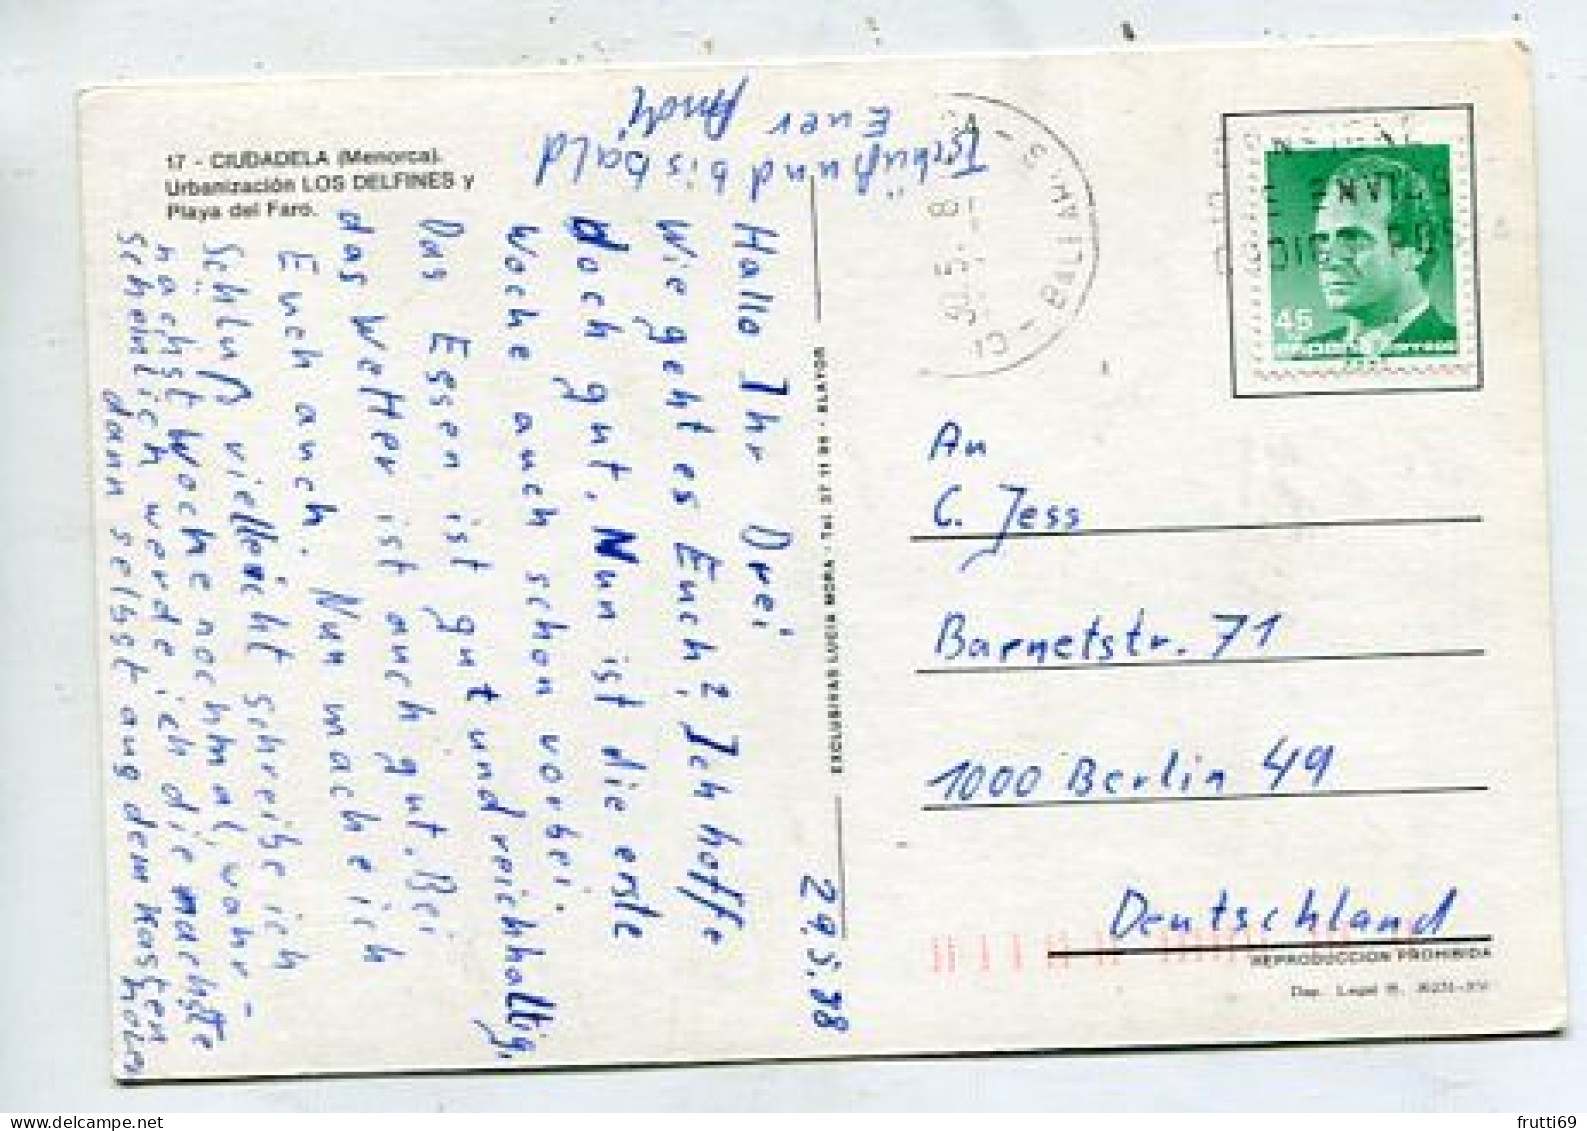 17 - CIUDADELA (Menorca).
Urbanización LOS DELFINES y
Playa del Faro.
29.5.88
Hallo Ihr Drei
Wie geht es Euch? Ich hoffe
doch gut. Nun ist die erste
Woche auch schon vorbei.
Das Essen ist gut und reichhaltig,
das Wetter ist auch gut. Bei
Euch auch. Nun mache ich
Schluß vielleicht schreibe ich
nächst Woche nochmal, wahr-
scheinlich werde ich die
dann selbst aus dem Kasten holen
Tschüß und bis bald
Euer Andi
EXCLUSIVAS LUCIA MORA - Tel. 37 11 96 - ALAYOR
30.5. 8
BALEARES
45
españa correos
An
C. Jess
Barnetstr. 71
1000 Berlin 49
Deutschland
REPRODUCCION PROHIBIDA
Dep. Legal B.
frutti69